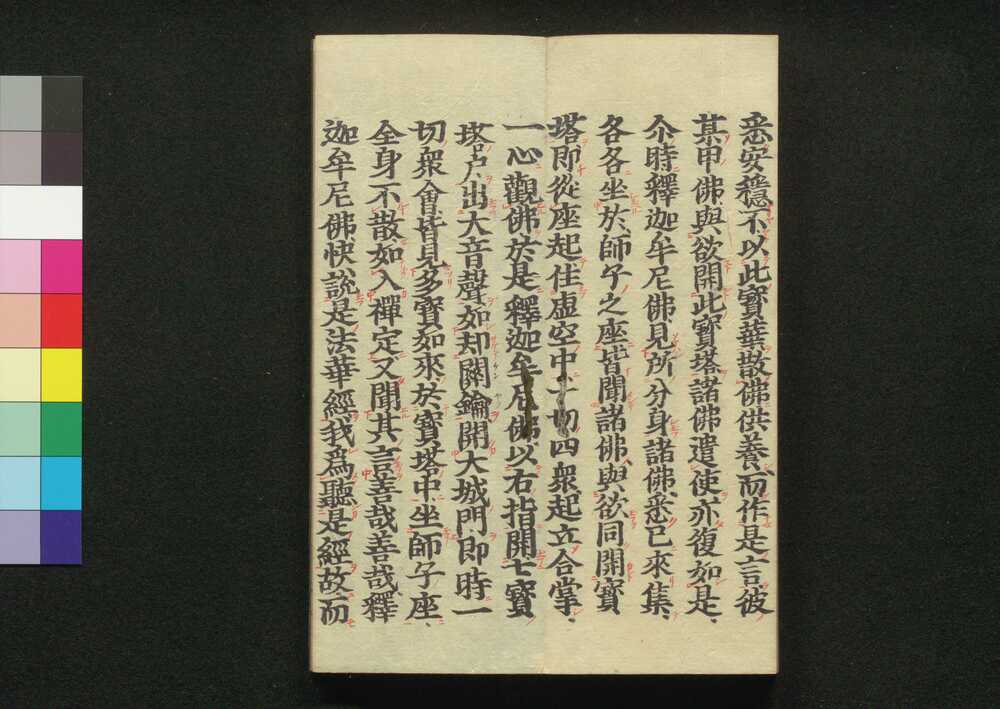 悉安穩不以此寶華散佛供養而作是言彼
某甲佛與欲開此寶塔諸佛遣使亦復如是
尒時釋迦牟尼佛見所分身諸佛悉已來集
各各坐於師子之座皆聞諸佛與欲同開寶
塔即從座起住虛空中一切四衆起立合掌
一心觀佛於是釋迦牟尼佛以右指開七寶
塔戶出大音聲如却關鑰開大城門即時一
切衆會皆見多寶如來於寶塔中坐師子座
全身不散如入禪定又聞其言善哉善哉釋
迦牟尼佛快說是法華經我爲聽是經故而